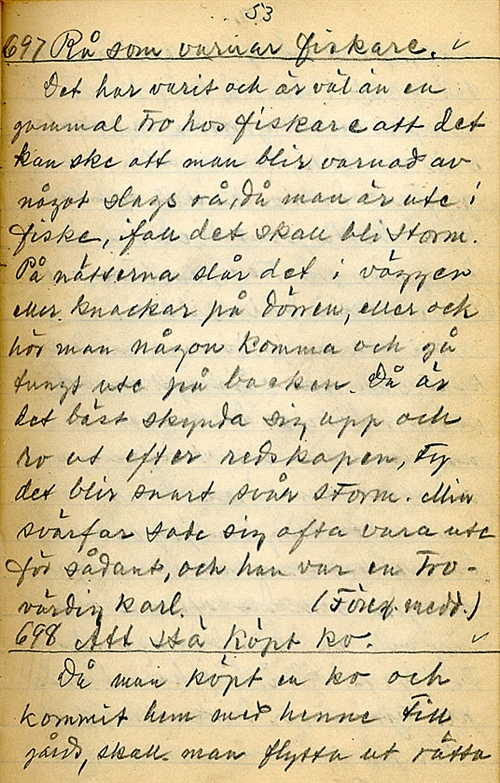 53
697 Rå som varnar fiskare. v
Det har varit och är väl än en
gammal tro hos fiskare att det
kan ske att man blir varnad av
något slags rå, då man är ute i
fiske, ifall det skall bli storm.
På nätterna slår det i väggen
eller knackar på dörren, eller och
hör man någon komma och gå
tungt ute på backen. Då är
det bäst skynda sig upp och
ro ut efter redskapen, ty
det blir snart svår storm. Min
svärfar sade sig ofta vara ute
för sådant, och han var en tro-
värdig karl. (Föreg. medd.)
698 Att stå köpt ko. v
Då man köpt en ko och
kommit hem med henne till
gårds, skall man flytta ut rätta